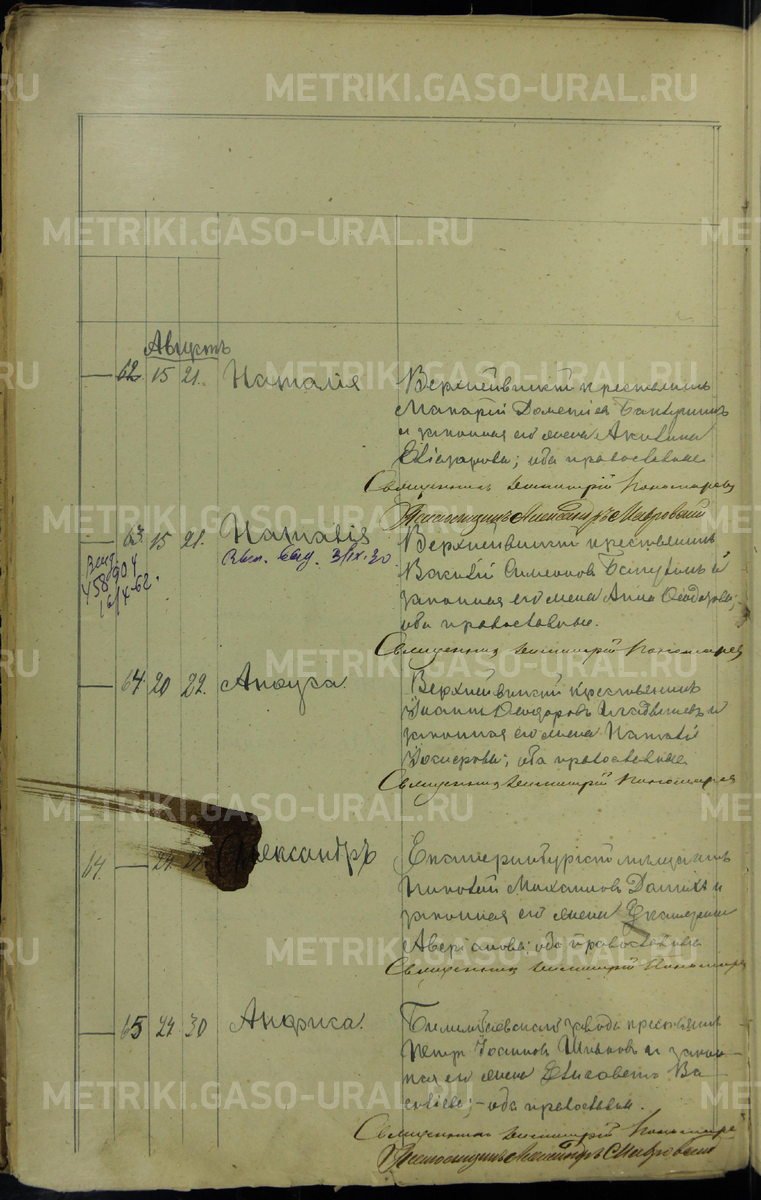 METRIKI.GASO-URAL.RU
Августъ
62 15 21. Наталія
Верхнейвинскій крестьянинъ
Макарій Дометіевъ
и законная его жена Акилина
Еліазарова; оба православные
Священникъ Димитрій Пономаревъ
Псаломщикъ Александръ Мавровскій
63 15 21. Наталія
Выд. 3/IX-30
Верхнейвинскій крестьянинъ
Василій Симеоновъ и
законная его жена Анна Ѳеодорова;
оба православные.
Священникъ Димитрій Пономаревъ
64 20 22. Анфуса.
Верхнейвинскій крестьянинъ
Іоаннъ Ѳеодоровъ и
законная его жена Наталія
оба православные
Священникъ Димитрій Пономаревъ
64. Александръ
Екатеринбургскій мѣщанинъ
Николай Михаиловъ и
законная его жена Екатерина
Аверіанова; оба православные
Священникъ Димитрій Пономаревъ
65 24 30 Анфиса.
Билимбаевскаго завода крестьянинъ
Петръ Іоанновъ и закон-
ная его жена Елисавета Ва-
сильева; оба православные.
Священникъ Димитрій Пономаревъ
Псаломщикъ Александръ Мавровскій